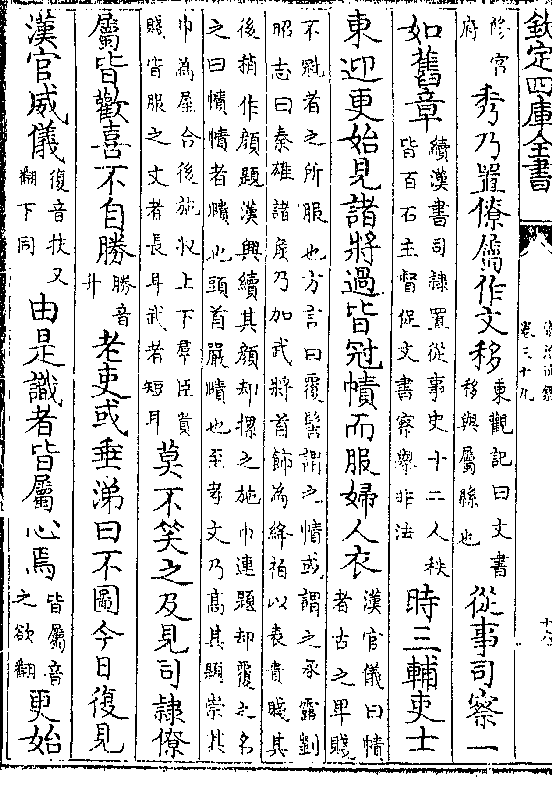 欽定四庫全書
資治通鑑
卷三十九
修宮府秀乃置僚屬作文移東觀記曰文書移與屬縣也從事司察一
如舊章續漢書司隸置從事史十二人秩皆百石主督促文書察舉非法時三輔吏士
東迎更始見諸將過皆冠幘而服婦人衣漢官儀曰幘者古之卑賤
不冠者之所服也方言曰覆髻謂之幘或謂之承露劉昭志曰秦雄諸侯乃加武將首飾為絳袙以表貴賤其
後稍作顔題漢興續其顔却摞之施巾連題却覆之名之曰幘幘者賾也頭首嚴賾也至孝文乃高其顔崇其
巾為屋合後施收上下羣臣貴賤皆服之文者長耳武者短耳莫不笑之及見司隸僚
屬皆歡喜不自勝勝音升老吏或垂涕曰不圖今日復見
漢官威儀復音扶又翻下同由是識者皆屬心焉皆屬音之欲翻更始